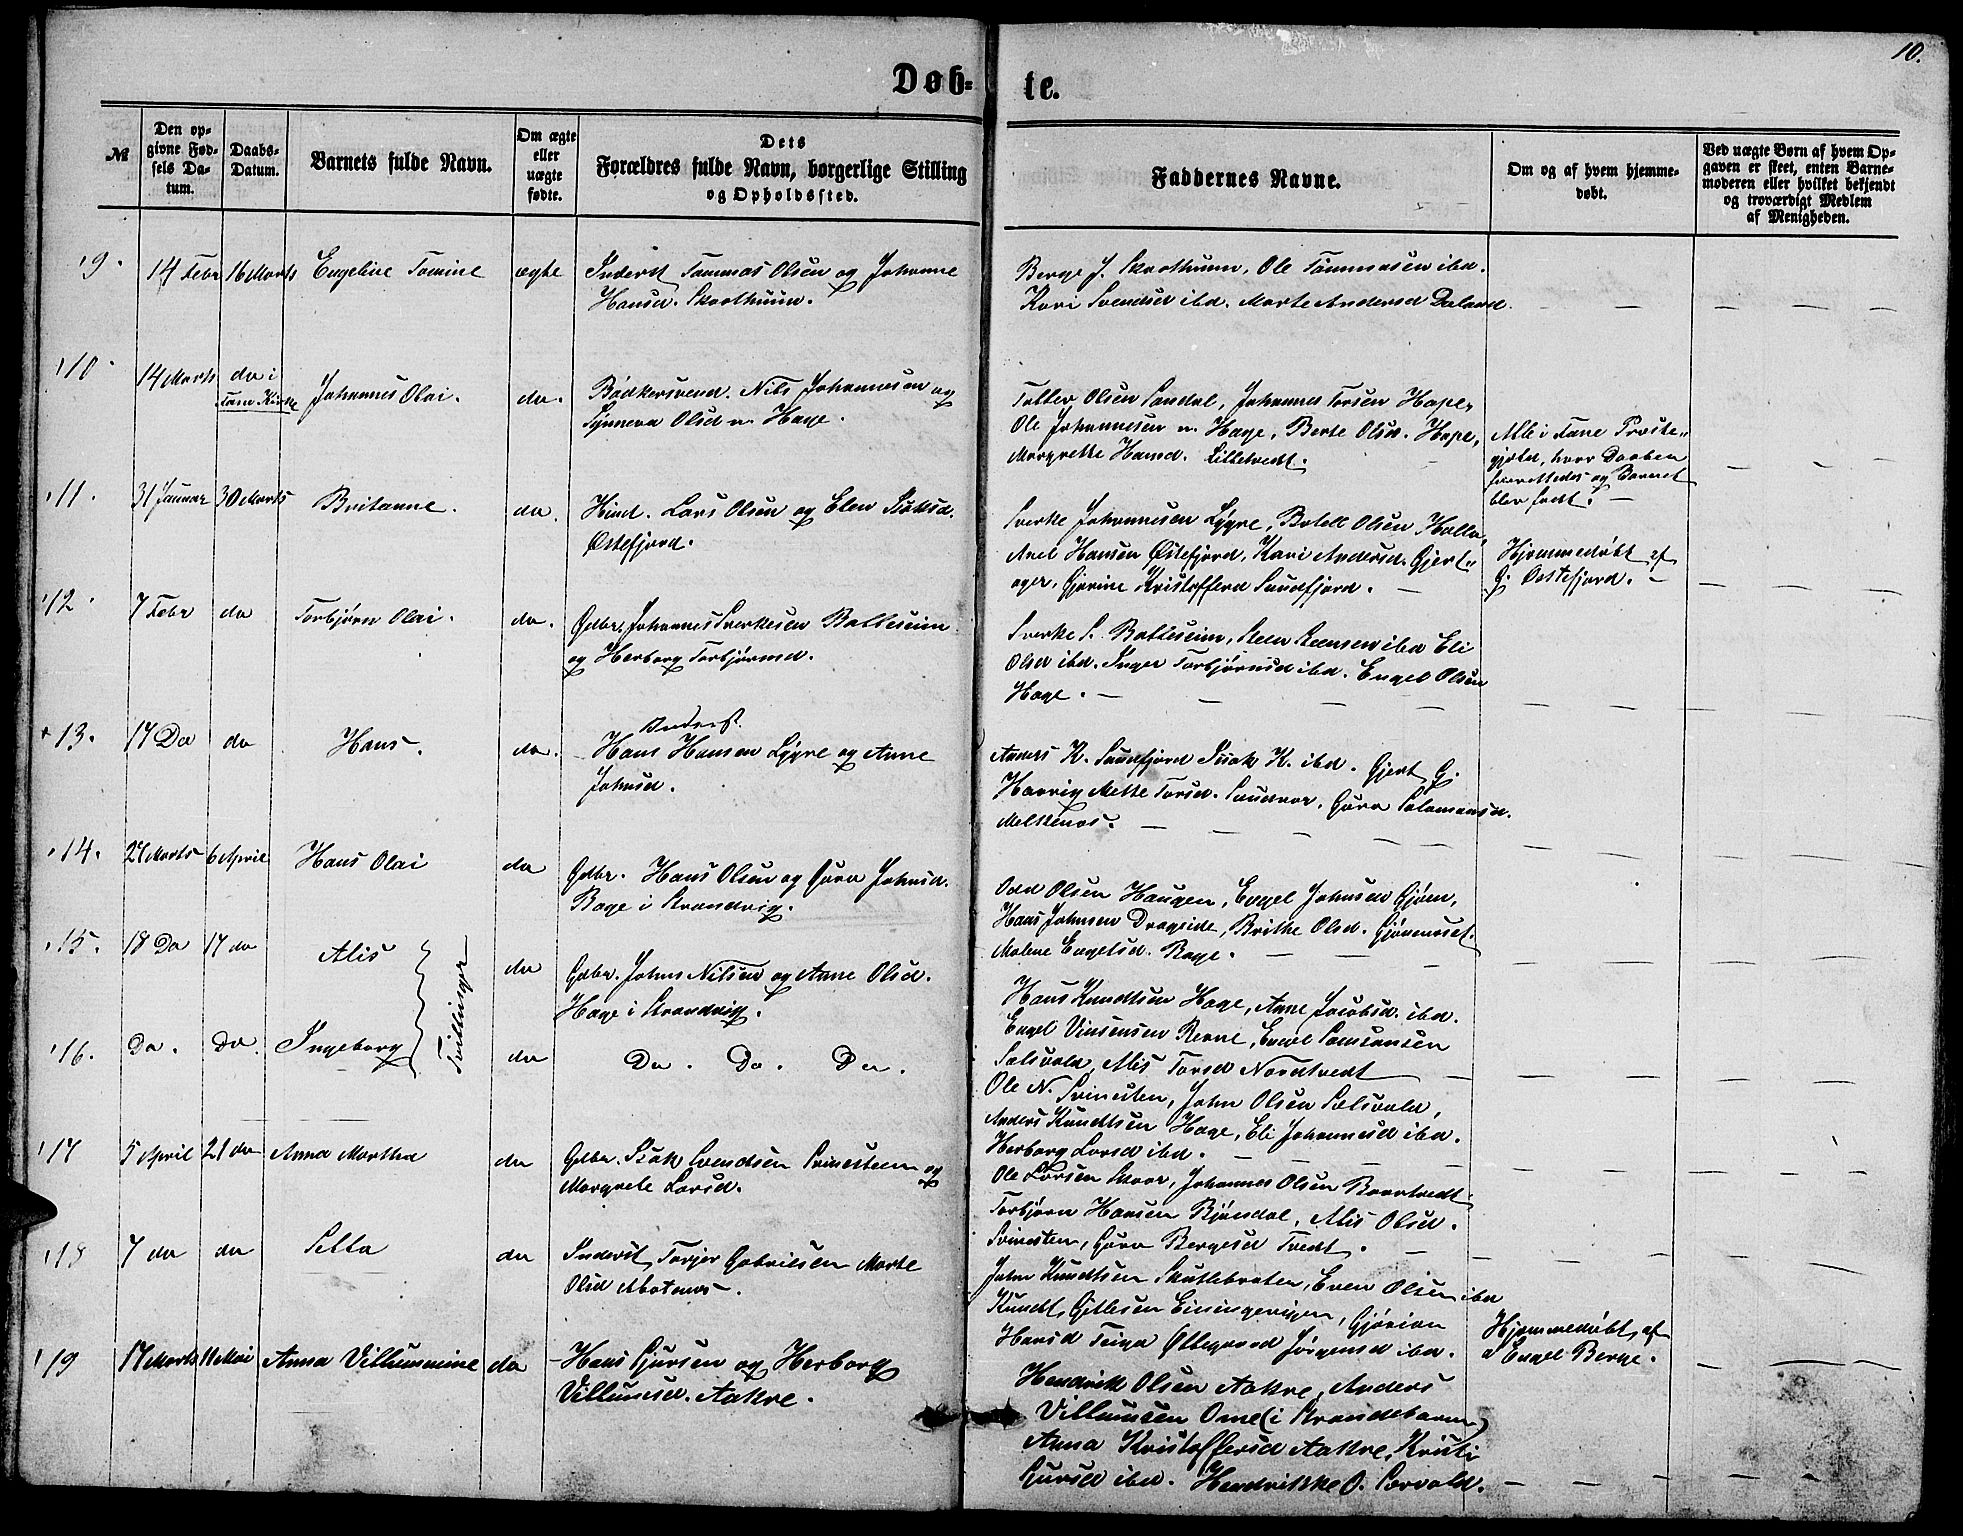 10.
Døb- te.
№
Den opgivne Fødsels Datum.
Daabs-Datum.
Barnets fulde Navn.
Om ægte eller uægte fødte.
Dets
Forældres fulde Navn, borgerlige Stilling
og Opholdssted.
Faddernes Navne.
Om og af hvem hjemmedøbt.
Ved uægte Børn af hvem Opgaven er skeet, enten Barnemoderen eller hvilket bekjendt og troværdigt Medlem af Menigheden.
9. 14 Febr 16 Marts Engeline Tomine ægte Inderst Tommas Olsen og Johanne
Hansd. Skorthuun.
Berge J. Skorthuun, Ole Tommasen ibd.
Kari Svendsd ibd. Marte Andersd Daland
10. 14 Marts do i Fane Kirke Johannes Olai. do. Bødkersvend. Nils Johannesen og
Synneva Olsd n. Hage.
Tollev Olsen Sandal, Johannes Torsen Hope,
Ole Johannesen n. Hage, Berte Olsd. Hope,
Margrethe Hansd. Lilletvedt.
Alle i Fane Præste-
gjæld, hvor Daaben
forrettedes og Barnet
blev født.
11. 31 Januar 30 Marts Britanne. do. Hmd. Lars Olsen og Elen Isaksd.
Østefjord.
Sverke Johannesen Lygre, Botell Olsen
Axel Hansen Østefjord, Kari Andersd. Gjert-
ager, Gjorine Kristofferd Sundfjord.
Hjemmedøbt af
G. Østefjord.
12. 7 Febr do Torbjørn Olai. do. Gdbr. Johannes Sverkesen Balleseim
og Herborg Torbjørnsd.
Sverke S. Balleseim, Steen ibd Eli
Olsd ibd. Inger Torbjørnsd ibd. Engel Olsen
Hage.
13. 17 Do do Hans. do. Inderst.
Hans Hansen Lygre og Anne
Johnsd.
Anders K. Sundfjord Isak K. ibd. Gjert G.
Havrig Mette Torsd. Sundvor, Guro Salomonsd.
Melkenes.
14. 24 Marts 6 April Hans Olai do Gdbr. Hans Olsen og Guro Johnsd.
Bage i Strandvig.
Odd Olsen Haugen, Engel Johnsen Gjøen,
Hans Johnsen Drageide, Brithe Olsd. Gjønneset.
Malene Engelsd. Bage.
15. 18 Do 17 do Alis Tvillinger do Gdbr. Johns Nilsen og Anne Olsd.
Hage i Strandvig.
Hans Knudtsen Hage, Anne Jacobsd. ibd.
Engel Vinsensen Revne, Engel Samsonsen
Salsvold, Alis Torsd Nordtvedt
16. Do. Do. Ingeborg do Do. Do. Do.
Ole N. Svinesten, John Olsen Salsvold,
Anders Knudtsen Hage, Eli Johannesd ibd.
Herborg Larsd ibd.
17 5 April 21 do Anna Martha do Gdbr. Isak Svendsen Svinesteen og
Margrete Larsd.
Ole Larsen Skaar, Johannes Olsen
Torbjørn Hansen Bjøndal, Alis Olsd.
Svinesten, Guro Bergesd Tvedt.
18 7 do do Setta do Inderst Torger Gabrielsen Marte
Olsd Abotsnes.
John Knudtsen Skutlebraten, Even Olsen ibd
Knudt Gitlesen Eningevigen, Gjørion
Hansd Teiga Øllegaard Jørgensd ibd.
Hjemmedøbt af
Engel Berge.
19 17 Marts 11 Mai Anna Villummine do Hans Sjursen og Herborg
Villumsd. Aakre.
Hendrik Olsen Aakre, Anders
Villumsen Ome (i Strandebarm)
Anna Kristoffersd Aakre, Kristi
Sjursd ibd. Hendrikke O. Sørvold.